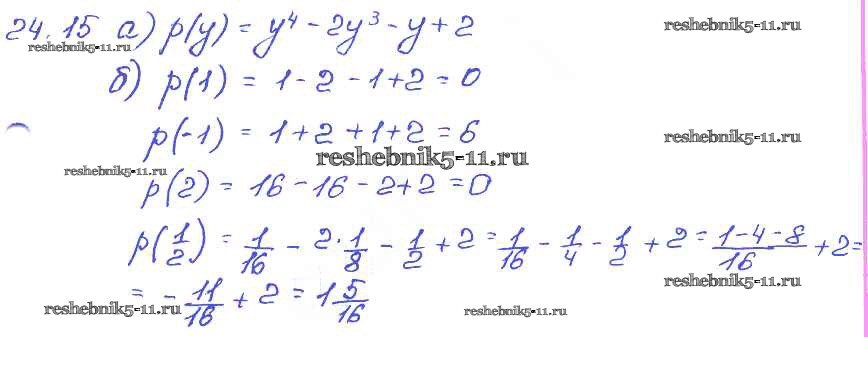 24.15 а) p(y) = y⁴ - 2y³ - y + 2
reshebnik5-11.ru
reshebnik5-11.ru
б) p(1) = 1 - 2 - 1 + 2 = 0
p(-1) = 1 + 2 + 1 + 2 = 6
reshebnik5-11.ru
reshebnik5-11.ru
reshebnik5-11.ru
p(2) = 16 - 16 - 2 + 2 = 0
p(1/2) = 1/16 - 2·1/8 - 1/2 + 2 = 1/16 - 1/4 - 1/2 + 2 = (1-4-8)/16 + 2 =
reshebnik5-11.ru
= - 11/16 + 2 = 1 5/16
reshebnik5-11.ru
reshebnik5-11.ru